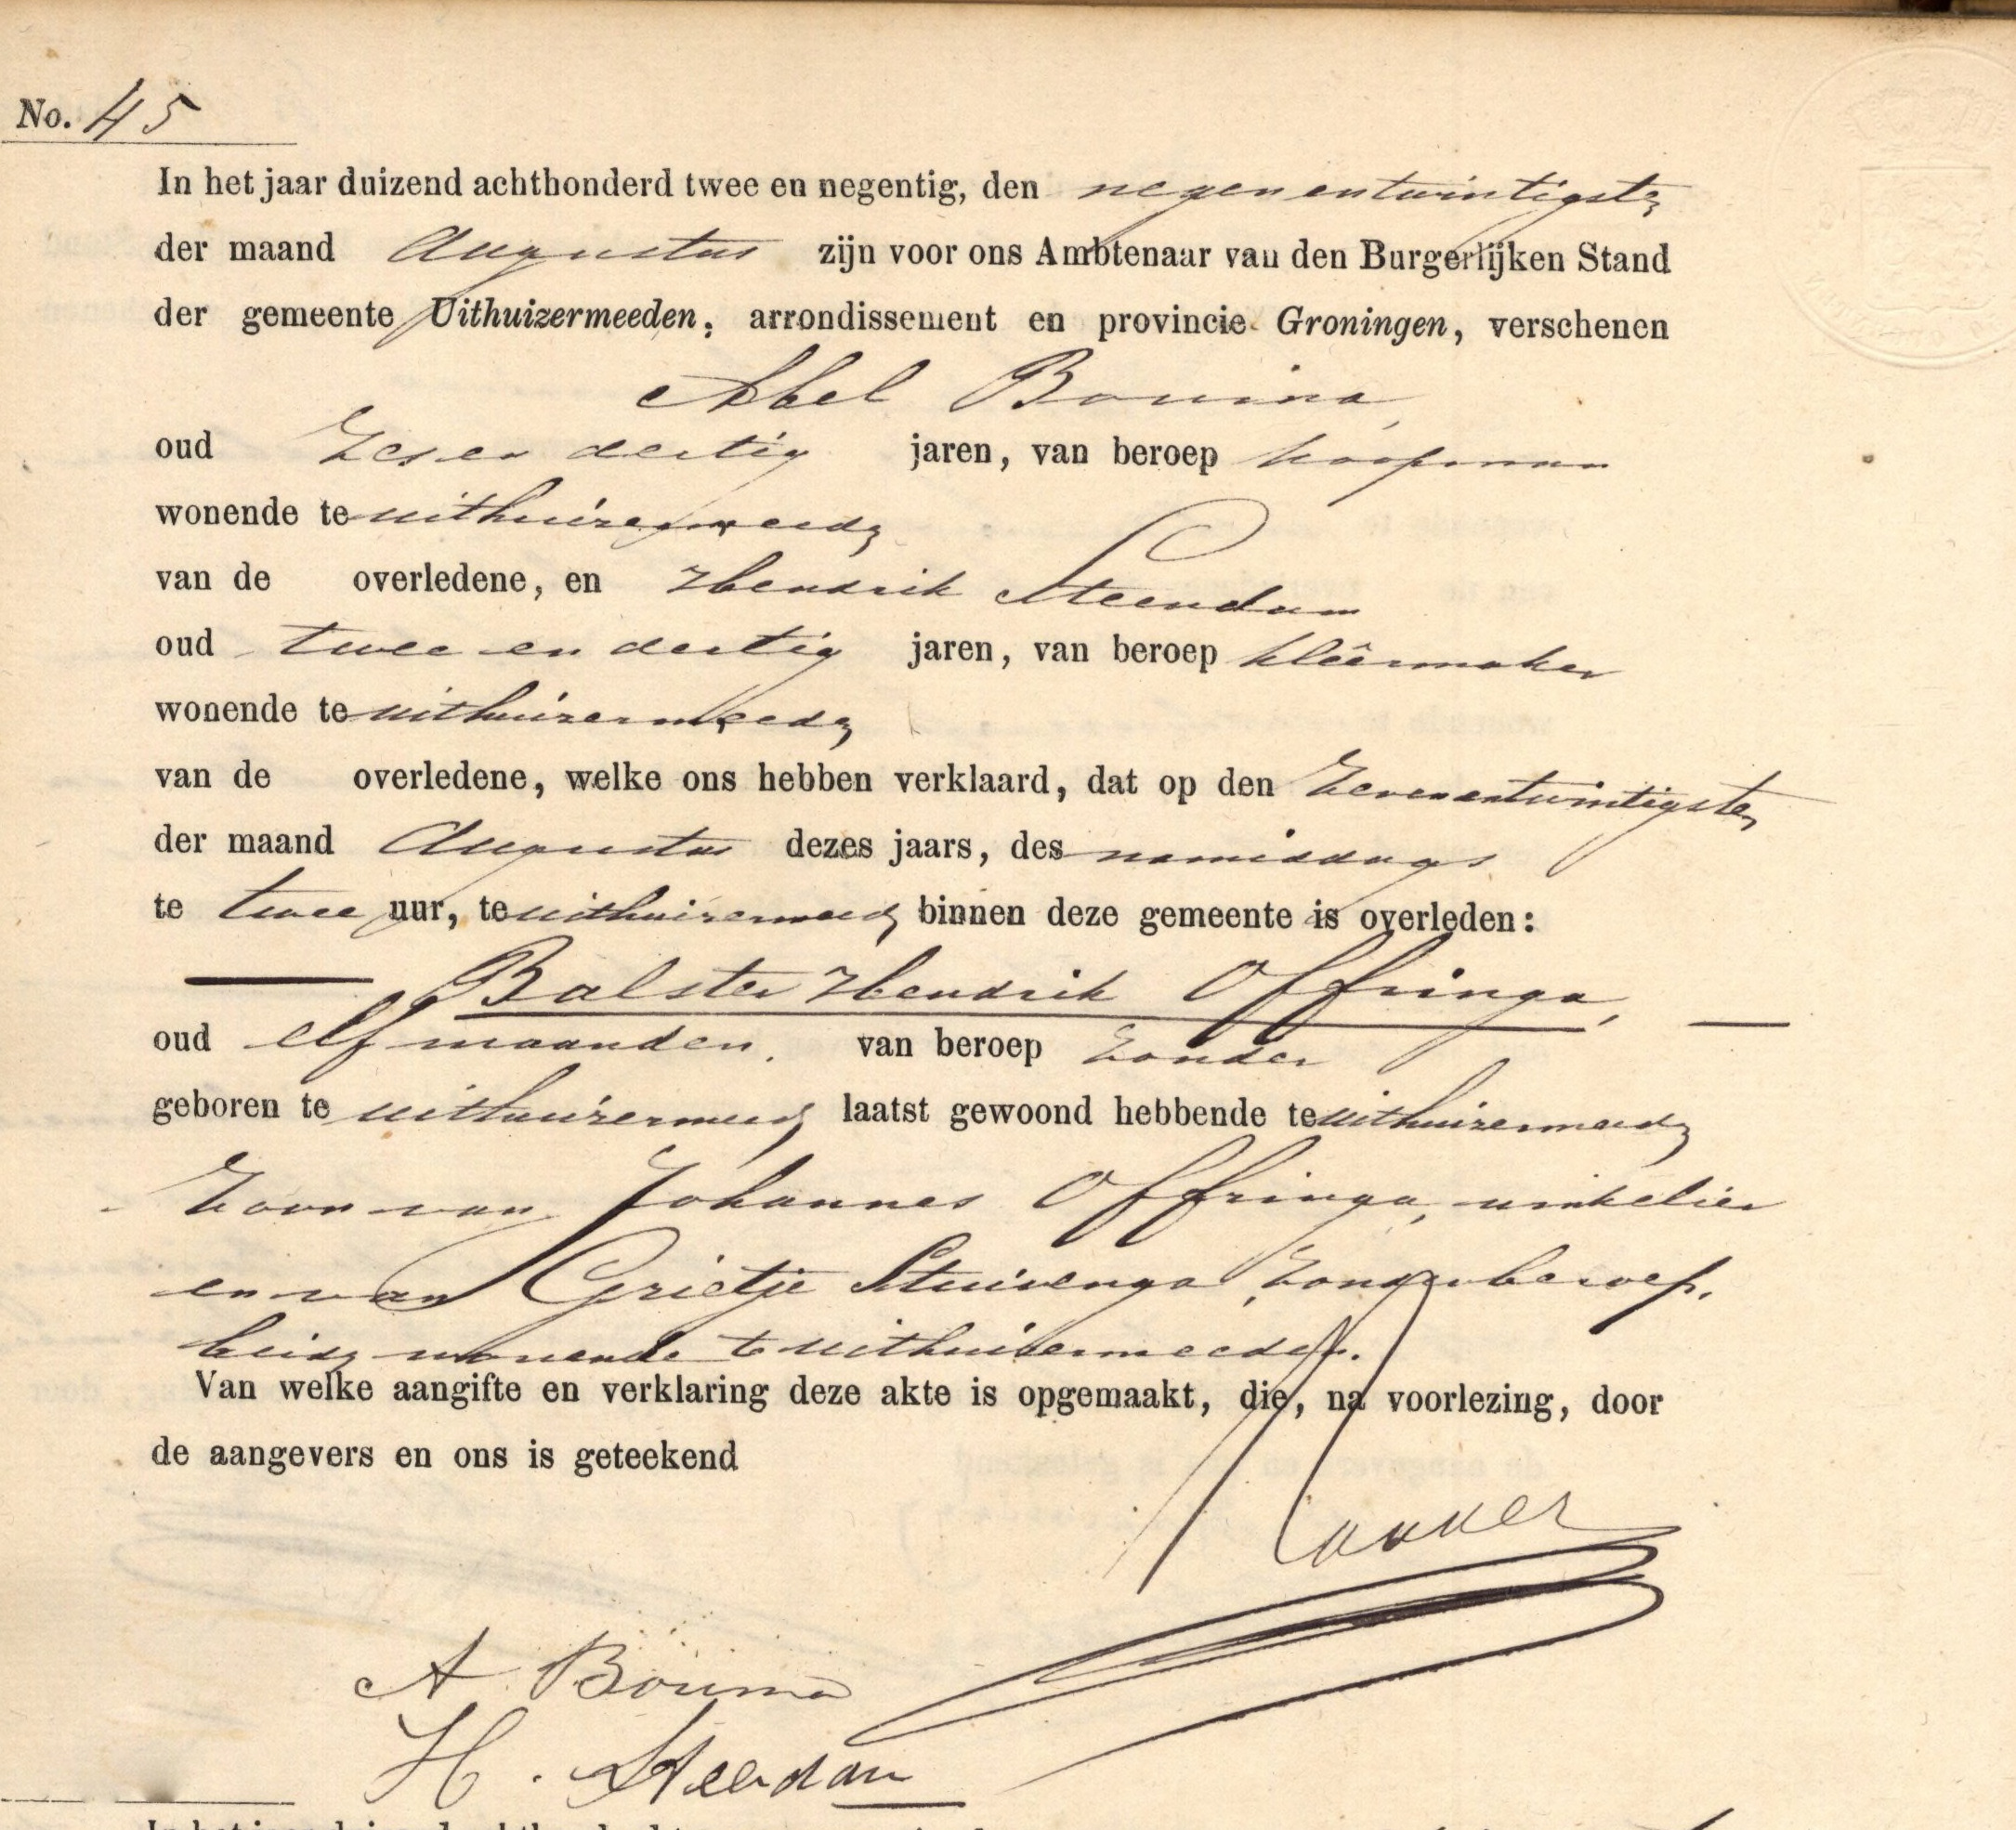 No. 45
In het jaar duizend achthonderd twee en negentig, den negenentwintigsten
der maand Augustus zijn voor ons Ambtenaar van den Burgerlijken Stand
der gemeente Uithuizermeeden, arrondissement en provincie Groningen, verschenen
Abel Bouma,
oud zes en dertig jaren, van beroep koopman
wonende te uithuizermeeden
van de overledene, en Hendrik Steendam
oud twee en dertig jaren, van beroep kleêrmaker
wonende te uithuizermeeden
van de overledene, welke ons hebben verklaard, dat op den zevenentwintigsten
der maand Augustus dezes jaars, des namiddags
te twee uur, te uithuizermeeden binnen deze gemeente is overleden:
Balster Hendrik Offringa,
oud elf maanden, van beroep zonder
geboren te uithuizermeeden laatst gewoond hebbende te uithuizermeeden
zoon van Johannes Offringa, winkelier
en van Grietje Stuivenga, zonder beroep,
beiden wonende te uithuizermeeden.
Van welke aangifte en verklaring deze akte is opgemaakt, die, na voorlezing, door
de aangevers en ons is geteekend
A Bouma
H. Steendam